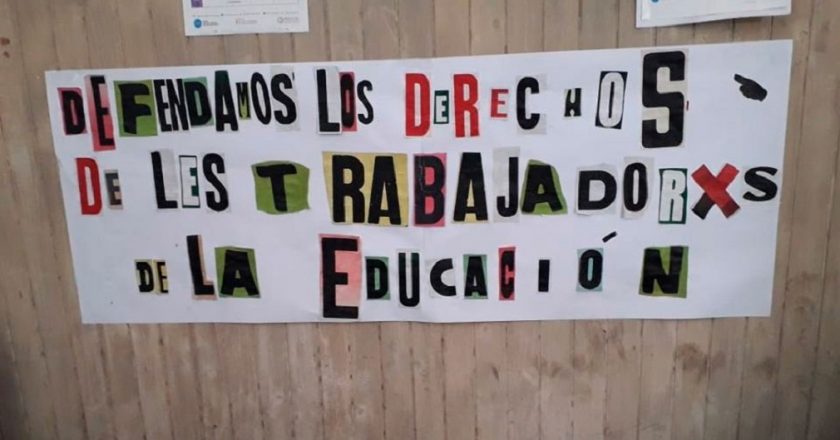 DEFENDAMOS LOS DERECHOS
DE LES TRABAJADORXS
DE LA EDUCACIÓN